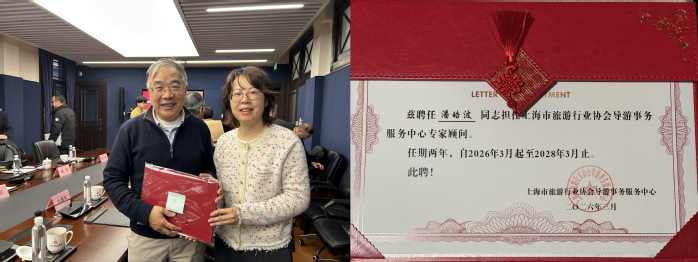 LETTER
MENT
兹聘任 潘皓波 同志担任上海市旅游行业协会导游事务
服务中心专家顾问。
任期两年，自2026年3月起至2028年3月止。
此聘！
上海市旅游行业协会导游事务服务中心
二〇二六年三月